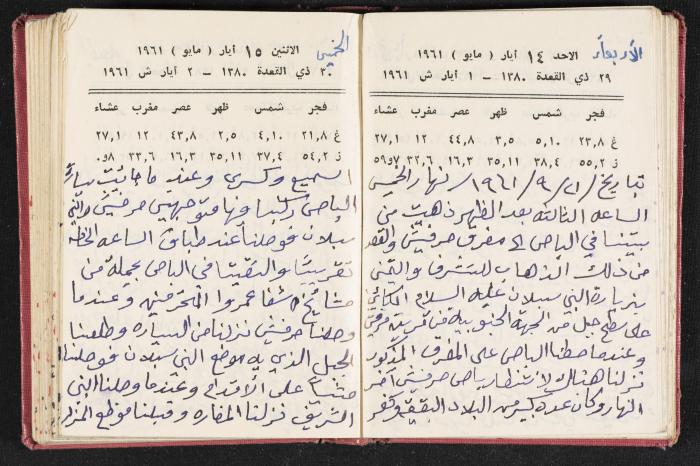 الأربعاء
الاحد ١٤ أيار ( مايو ) ١٩٦١
٢٩ ذي القعدة ١٣٨٠ — ١ أيار ش ١٩٦١
فجر شمس ظهر عصر مغرب عشاء
غ ٢٣,٨ ٥,١٠ ٣,٥ ٤٤,٨ ١٢ ٢٧,١
ز ٥٥,٢ ٣٨,٤ ٣٥,١١ ١٦,٣ ٣٢,٦ ٥٩و٧
بتاريخ / ٢١ / ٩ / ١٩٦١ / نهار الخميس
الساعه الثالثه بعد الظهر ذهبت من
بيتنا في الباص الى مفرق حرفيش والقصد
من ذلك الذهاب للتشرف والتمني
بزيارة النبي سبلان عليه السلام
على سطح جبل من الجهة الجنوبيه من قرية حرفيش
وعندما حطنا الباص على المفرق المذكور
نزلنا هناك لانتظار باص حرفيش آخر
النهار وكان عدد كبير من البلاد البقيعه وكفر
الخميس
الاثنين ١٥ أيار ( مايو ) ١٩٦١
٣٠ ذي القعدة ١٣٨٠ — ٢ أيار ش ١٩٦١
فجر شمس ظهر عصر مغرب عشاء
غ ٢١,٨ ٤,١٠ ٢,٥ ٤٣,٨ ١٢ ٢٧,١
ز ٥٤,٢ ٣٧,٤ ٣٥,١١ ١٦,٣ ٣٣,٦ ٠و٨
السميع وكسرى وعند ما جائت سيارة
الباص ركبنا بها متوجهين حرفيش والنبي
سبلان فوصلنا عند طباق الساعه الخامسة
تقريبًا والتقينا في الباص بجملة من
مشائخ شفا عمروا المحترمين وعندما
وصلنا حرفيش نزلنا من السياره وطلعنا
الجبل الذي به موضع النبي سبلان فوصلنا
مشيًا على الأقدام وعندما وصلنا النبي
الشريف نزلنا المغاره وقبلنا موضع المزار